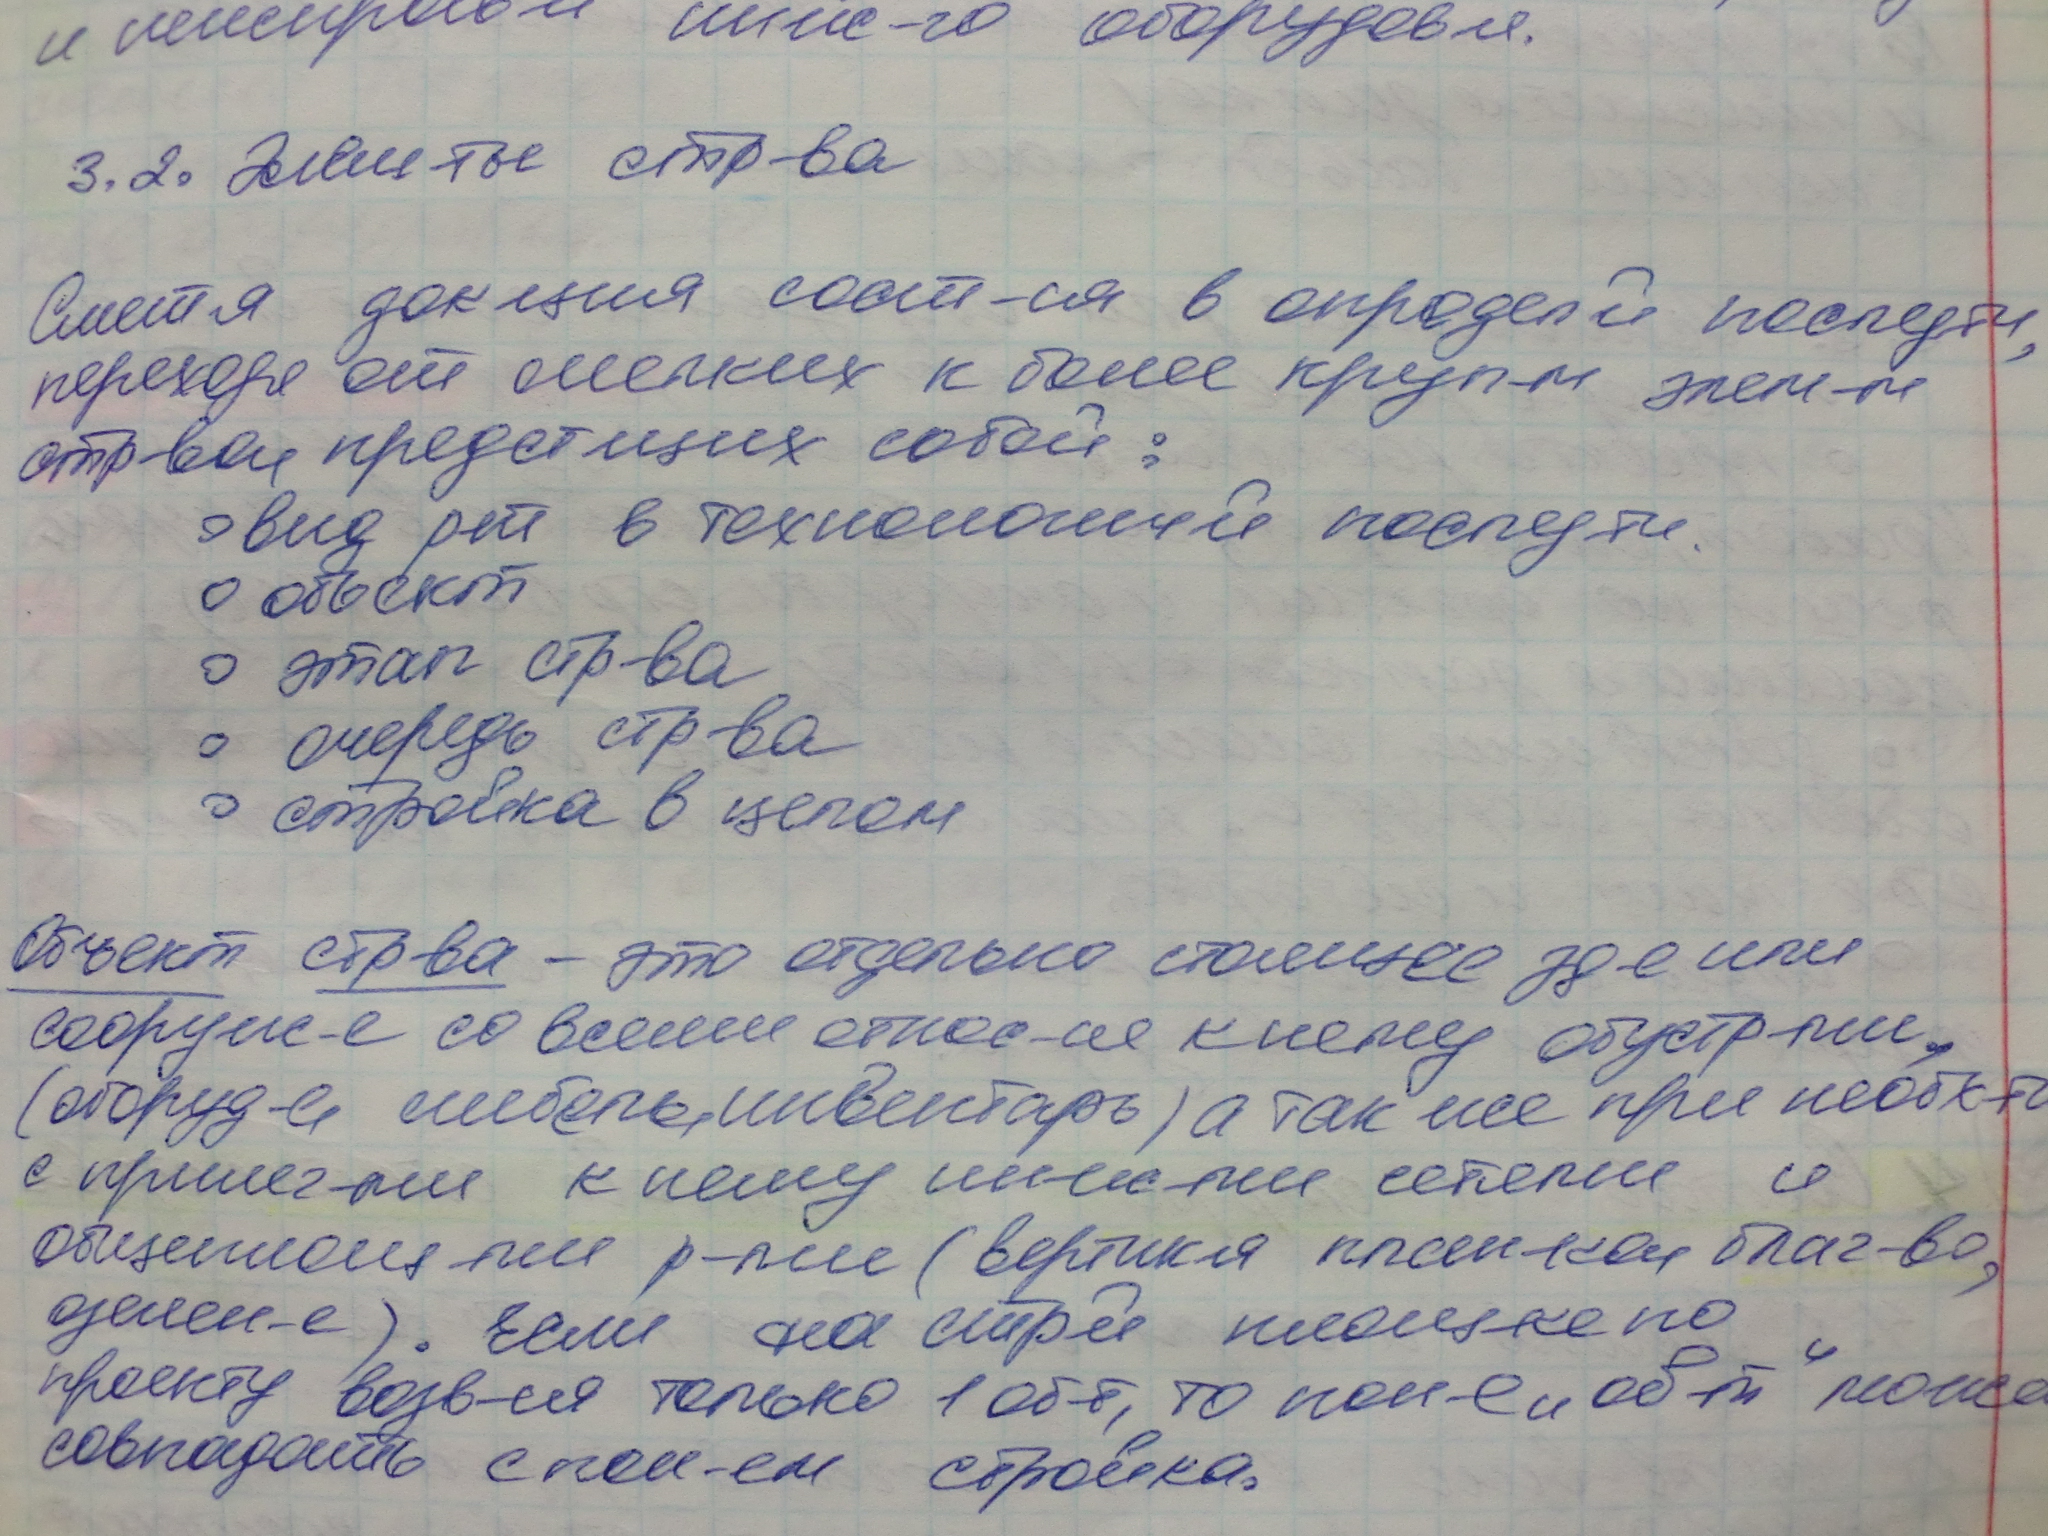 и неисправ инж-го оборудов я.
3.2. Элем-ты стр-ва
Сметя докция сост-ся в определй последти,
переходя от мелких к более крупн-м элем-м
стр-ва, предстщих собой:
вид рт в технологичй последти.
объект
этап стр-ва
очередь стр-ва
стройка в целом
Объект стр-ва - это отдельно стоящее зд-е или
сооруж-е со всеми относ-ся к нему обустр-ми,
(оборуд-е, мебель, инвентарь) а так же при необх-ти
с прилег-ми к нему инж-ми сетями и
общеплощ ми р-ми (вертикя план-ка, благ-во,
озелен-е). Если на стрй площке по
проекту возв-ся только 1 об-т, то пон-е „об-т“ може
совпадать с пон-ем стройка.